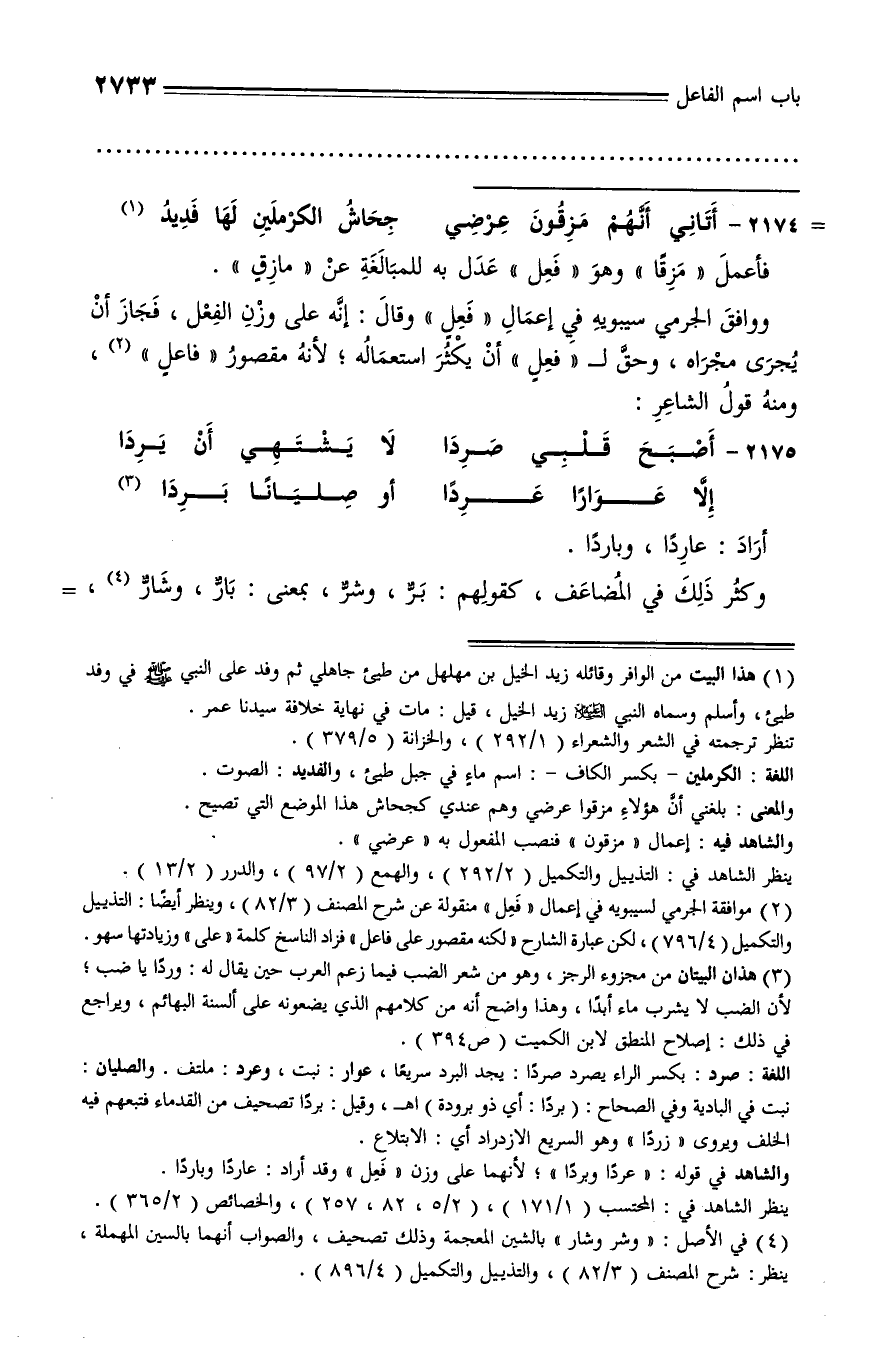 باب اسم الفاعل ٢٧٣٣
= ٢١٧٤ - أَتَانِي أَنَّهُمْ مَزِقُونَ عِرْضِي جِحَاشُ الكرْملَينِ لَهَا فَدِيدُ (١)
فأعملَ « مَزِقًا » وهوَ « فَعِل » عَدَل به للمبَالَغَةِ عنْ « مازِقٍ » .
ووافقَ الجرمي سيبويهِ فِي إعمَالِ « فَعِل » وقالَ : إنَّه على وزْنِ الفِعْل ، فَجَازَ أنْ
يُجرَى مجْرَاه ، وحقَّ لـ « فعِلٍ » أنْ يكْثُرَ استعمَالُه ؛ لأنهُ مقصورُ « فاعلٍ » (٢) ،
ومنهُ قولُ الشاعِرِ :
٢١٧٥ - أَصْبَحَ قَلْبِي صَرِدَا لَا يَشْتَهِي أَنْ يَرِدَا
إِلَّا عَوَارًا عَرِدًا أو صِلِيَانًا بَرِدَا (٣)
أرَادَ : عارِدًا ، وباردًا .
وكثُر ذَلِكَ في المُضاعَف ، كقولِهم : بَرٌّ ، وشرٌّ ، بمعنى : بَارٌّ ، وشَارٌّ (٤) ، =
(١) هذا البيت من الوافر وقائله زيد الخيل بن مهلهل من طيئ جاهلي ثم وفد على النبي ﷺ في وفد
طيئ ، وأسلم وسماه النبي ﷺ زيد الخيل ، قيل : مات في نهاية خلافة سيدنا عمر .
تنظر ترجمته في الشعر والشعراء ( ٢٩٢/١ ) ، والخزانة ( ٣٧٩/٥ ) .
اللغة : الكرملين - بكسر الكاف - : اسم ماءٍ في جبل طيئ ، والفديد : الصوت .
والمعنى : بلغني أنَّ هؤلاءِ مزقوا عرضي وهم عندي كجحاش هذا الموضع التي تصيح .
والشاهد فيه : إعمال « مزقون » فنصب المفعول به « عرضي » .
ينظر الشاهد في : التذييل والتكميل ( ٢٩٢/٢ ) ، والهمع ( ٩٧/٢ ) ، والدرر ( ١٣/٢ ) .
(٢) موافقة الجرمي لسيبويه في إعمال « فَعِل » منقولة عن شرح المصنف ( ٨٢/٣ ) ، وينظر أيضًا : التذييل
والتكميل ( ٧٩٦/٤ ) ، لكن عبارة الشارح « لكنه مقصور على فاعل » فزاد الناسخ كلمة « على » وزيادتها سهو .
(٣) هذان البيتان من مجزوء الرجز ، وهو من شعر الضب فيما زعم العرب حين يقال له : وردًا يا ضب ؛
لأن الضب لا يشرب ماء أبدًا ، وهذا واضح أنه من كلامهم الذي يضعونه على ألسنة البهائم ، ويراجع
في ذلك : إصلاح المنطق لابن الكميت ( ص٣٩٤ ) .
اللغة : صرد : بكسر الراء يصرد صردًا : يجد البرد سريعًا ، عوار : نبت ، وعرد : ملتف . والصليان :
نبت في البادية وفي الصحاح : ( بردًا : أي ذو برودة ) اهـ ، وقيل : بردًا تصحيف من القدماء فتبعهم فيه
الخلف ويروى « زردًا » وهو السريع الازدراد أي : الابتلاع .
والشاهد في قوله : « عردًا وبردًا » ؛ لأنهما على وزن « فَعِل » وقد أراد : عاردًا وباردًا .
ينظر الشاهد في : المحتسب ( ١٧١/١ ) ، ( ٥/٢ ، ٨٢ ، ٢٥٧ ) ، والخصائص ( ٣٦٥/٢ ) .
(٤) في الأصل : « وشر وشار » بالشين المعجمة وذلك تصحيف ، والصواب أنهما بالسين المهملة ،
ينظر : شرح المصنف ( ٨٢/٣ ) ، والتذييل والتكميل ( ٨٩٦/٤ ) .